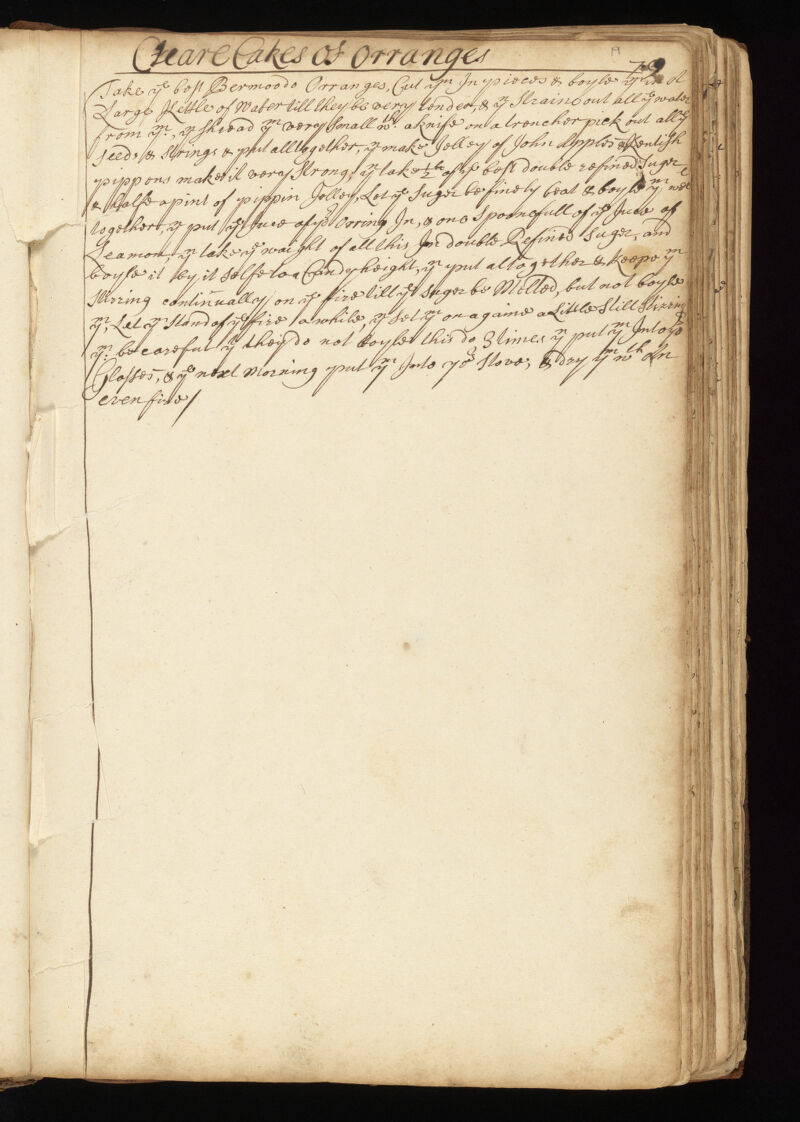 Cleare Cakes Of Orranges
Take ye best Bermoodo Orranges, Cut ym In pieces & boyle ym in A
Large Kittle of Water till they be very tender, & yn Straine out all ye water
from ym, yn Shread ym very Small wth a knife on a trencher pick out all ye
Seeds & Strings & put all together, yn make Jelley of John Apples or Kentish
pippens make it very Strong, yn take 1/2 lb of ye best double refined Suger
& halfe a pint of pippin Jelley, Let ye Suger be finely beat & boyle ym well
together, yn put ye Juce of ye Orring In, & one Spoonefull of ye Juce of
Leamon, yn take ye waight of all this In double Refined Suger, and
boyle it by it Selfe to a Candy height, yn put altogether & keepe ym
Stirring continually on ye fire till ye Suger be Melted, but not boyle
ym, Let ym Stand of ye fire a while, yn Set ym on againe a Little Still Stiring
ym, be carefull yt they do not boyle this do 3 times yn put ym Into yor
Glasses, & ye next Morning put ym Into yor Stove, & dry ym wth An
even fire /